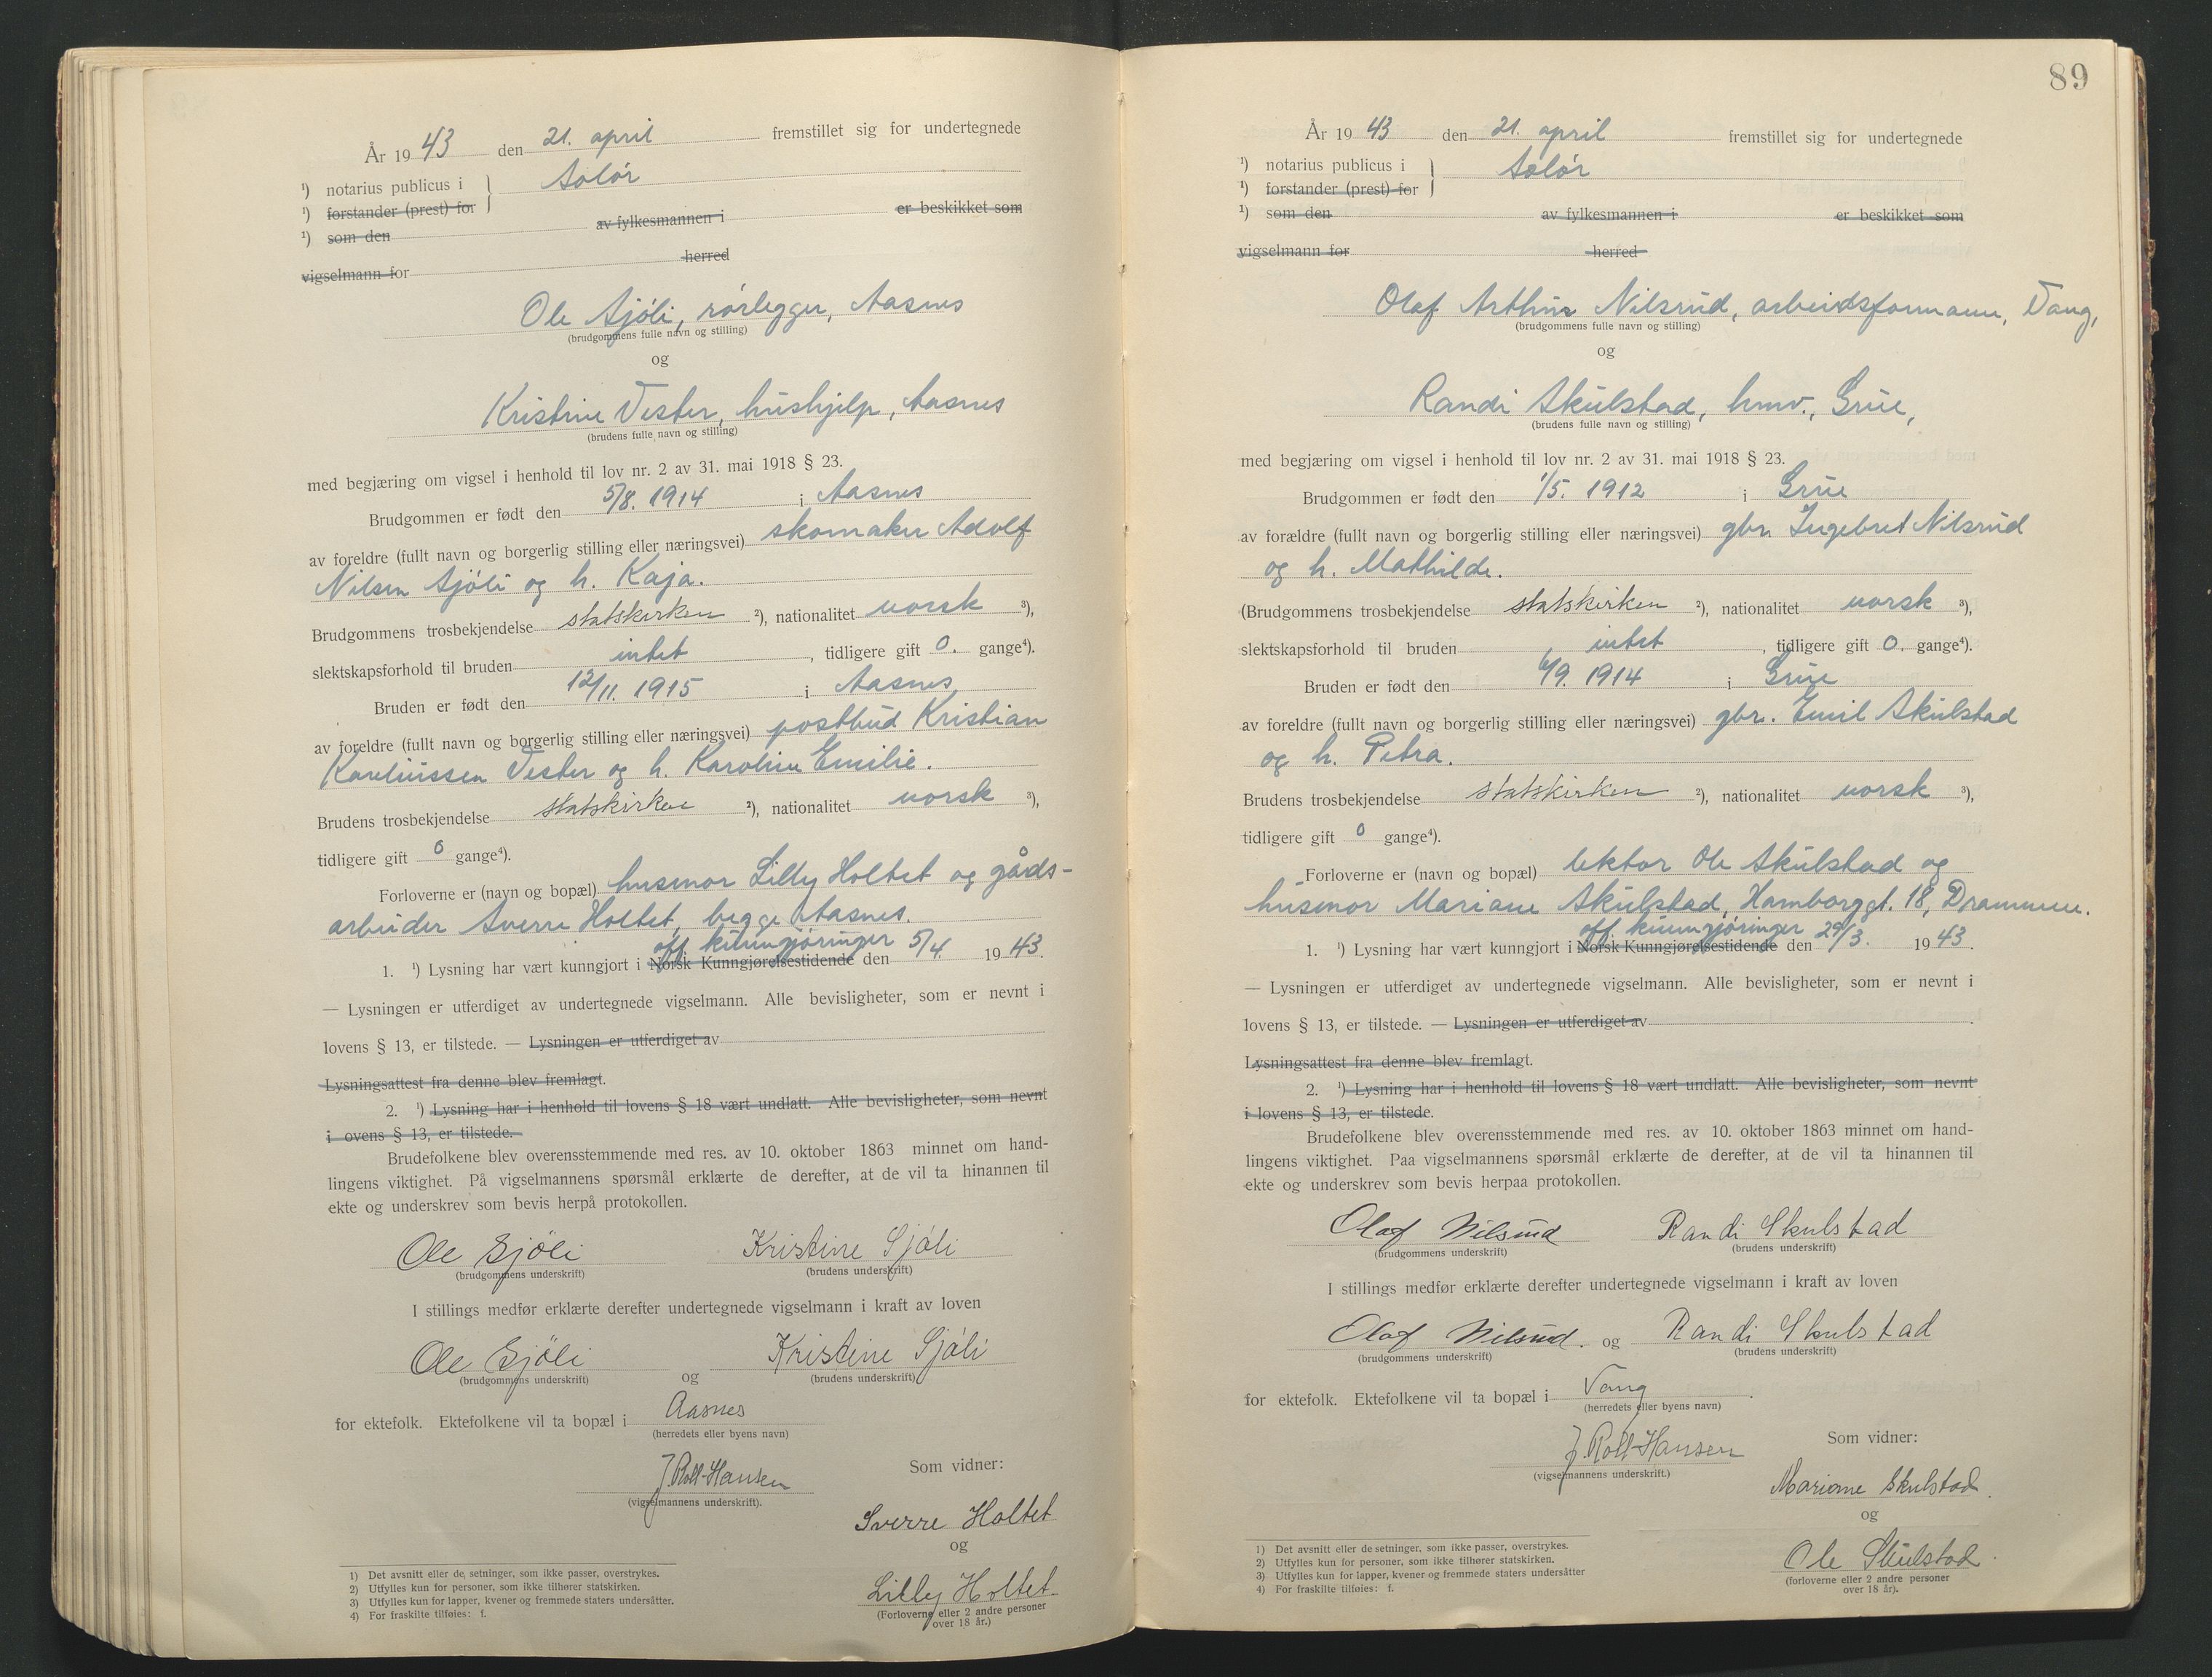 År 1943 den 21. april fremstillet sig for undertegnede
¹) notarius publicus i } Solør
¹) forstander (prest) for
¹) som den av fylkesmannen i er beskikket som
vigselmann for herred
Ole Sjøli, rørlegger, Aasnes
(brudgommens fulle navn og stilling)
og
Kristine Vester, hushjelp, Aasnes
(brudens fulle navn og stilling)
med begjæring om vigsel i henhold til lov nr. 2 av 31. mai 1918 § 23.
Brudgommen er født den 5/8. 1914 i Aasnes
av foreldre (fullt navn og borgerlig stilling eller næringsvei) skomaker Adolf
Nilsen Sjøli og h. Kaja.
Brudgommens trosbekjendelse statskirken ²), nationalitet norsk ³),
slektskapsforhold til bruden intet, tidligere gift 0. gange⁴).
Bruden er født den 12/11. 1915 i Aasnes
av foreldre (fullt navn og borgerlig stilling eller næringsvei) postbud Kristian
Karelinssen Vester og h. Karoline Emilie.
Brudens trosbekjendelse statskirken ²), nationalitet norsk ³),
tidligere gift 0 gange⁴).
Forloverne er (navn og bopæl) husmor Lilly Holtet og gårds-
arbeider Sverre Holtet, begge Aasnes.
off kunngjøringer
1. ¹) Lysning har vært kunngjort i Norsk Kunngjørelsestidende den 5/4. 1943.
— Lysningen er utferdiget av undertegnede vigselmann. Alle bevisligheter, som er nevnt i
lovens § 13, er tilstede. — Lysningen er utferdiget av
Lysningsattest fra denne blev fremlagt.
2. ¹) Lysning har i henhold til lovens § 18 vært undlatt. Alle bevisligheter, som nevnt
i ovens § 13, er tilstede.
Brudefolkene blev overensstemmende med res. av 10. oktober 1863 minnet om hand-
lingens viktighet. På vigselmannens spørsmål erklærte de derefter, at de vil ta hinannen til
ekte og underskrev som bevis herpå protokollen.
Ole Sjøli Kristine Sjøli
(brudgommens underskrift) (brudens underskrift)
I stillings medfør erklærte derefter undertegnede vigselmann i kraft av loven
Ole Sjøli og Kristine Sjøli
(brudgommens underskrift) (brudens underskrift)
for ektefolk. Ektefolkene vil ta bopæl i Aasnes
(herredets eller byens navn)
J. Roll-Hansen
(vigselmannens underskrift).
Som vidner:
Sverre Holtet
og
Lilly Holtet
(Forloverne eller 2 andre personer
over 18 år.)
1) Det avsnitt eller de setninger, som ikke passer, overstrykes.
2) Utfylles kun for personer, som ikke tilhører statskirken.
3) Utfylles kun for lapper, kvener og fremmede staters undersåtter.
4) For fraskilte tilføies: f.
89
År 1943 den 21. april fremstillet sig for undertegnede
¹) notarius publicus i } Solør
¹) forstander (prest) for
¹) som den av fylkesmannen i er beskikket som
vigselmann for herred
Olaf Arthur Nilsrud, arbeidsformann, Vang,
(brudgommens fulle navn og stilling)
og
Randi Skulstad, hmv., Grue,
(brudens fulle navn og stilling)
med begjæring om vigsel i henhold til lov nr. 2 av 31. mai 1918 § 23.
Brudgommen er født den 1/5. 1912 i Grue
av forældre (fullt navn og borgerlig stilling eller næringsvei) gbr. Ingebret Nilsrud
og h. Mathilde.
(Brudgommens trosbekjendelse statskirken ²), nationalitet norsk ³),
slektskapsforhold til bruden intet, tidligere gift 0. gange⁴).
Bruden er født den 6/9. 1914 i Grue
av foreldre (fullt navn og borgerlig stilling eller næringsvei) gbr. Emil Skulstad
og h. Petra.
Brudens trosbekjendelse statskirken ²), nationalitet norsk ³),
tidligere gift 0 gange⁴).
Forloverne er (navn og bopæl) lektor Ole Skulstad og
husmor Mariane Skulstad, Hamborggt. 18, Drammen.
off kunngjøringer
1. ¹) Lysning har vært kunngjort i Norsk Kunngjørelsestidende den 29/3. 1943.
— Lysningen er utferdiget av undertegnede vigselmann. Alle bevisligheter, som er nevnt i
lovens § 13, er tilstede. — Lysningen er utferdiget av
Lysningsattest fra denne blev fremlagt.
2. ¹) Lysning har i henhold til lovens § 18 vært undlatt. Alle bevisligheter, som nevnt
i lovens § 13, er tilstede.
Brudefolkene blev overensstemmende med res. av 10. oktober 1863 minnet om hand-
lingens viktighet. Paa vigselmannens spørsmål erklærte de derefter, at de vil ta hinannen til
ekte og underskrev som bevis herpaa protokollen.
Olaf Nilsrud Randi Skulstad
(brudgommens underskrift) (brudens underskrift)
I stillings medfør erklærte derefter undertegnede vigselmann i kraft av loven
Olaf Nilsrud. og Randi Skulstad
(brudgommens underskrift) (brudens underskrift)
for ektefolk. Ektefolkene vil ta bopæl i Vang.
(herredets eller byens navn)
J. Roll-Hansen
(vigselmannens underskrift.)
Som vidner:
Mariane Skulstad.
og
Ole Skulstad.
(forloverne eller 2 andre personer
over 18 år).
1) Det avsnitt eller de setninger, som ikke passer, overstrykes.
2) Utfylles kun for personer, som ikke tilhører statskirken.
3) Utfylles kun for lapper, kvener og fremmede staters undersåtter
4) For fraskilte tilføies: f.